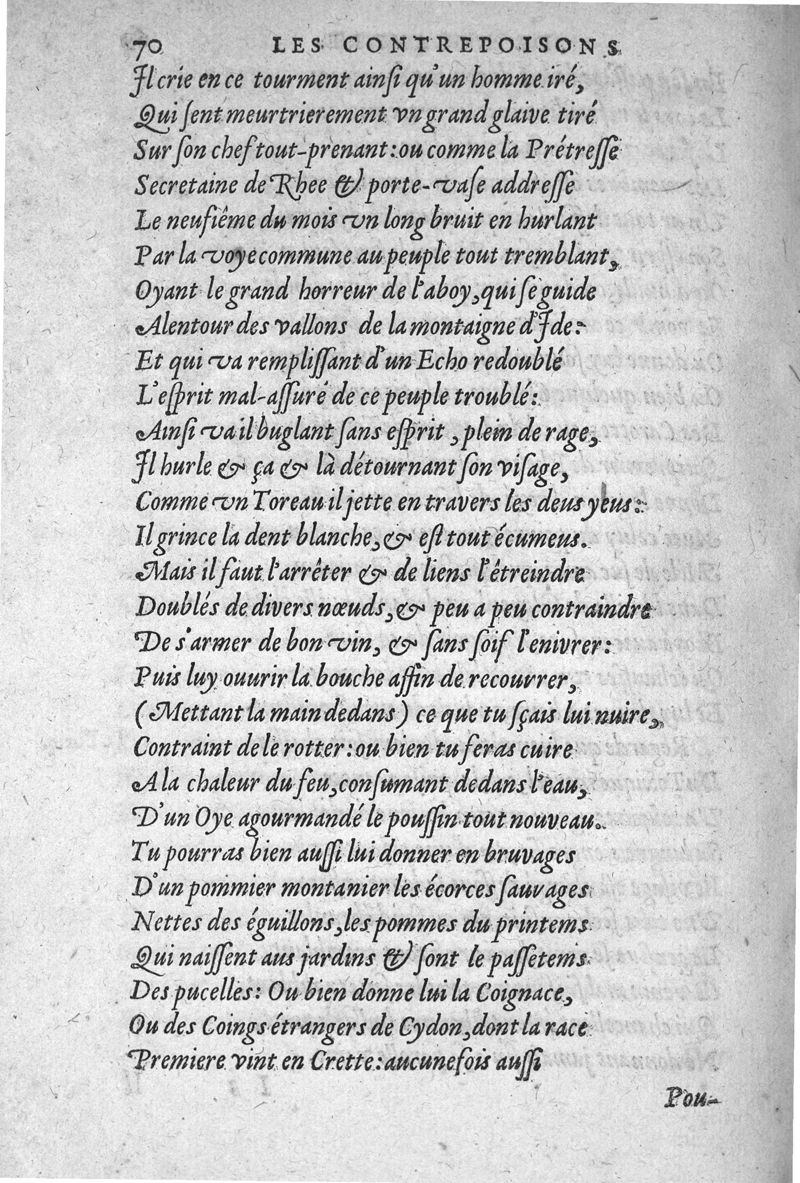 70 LES CONTREPOISONS
Il crie en ce tourment ainſi qu'un homme iré,
Qui ſent meurtrierement vn grand glaive tiré
Sur ſon chef tout-prenant: ou comme la Prétreſſe
Secretaine de Rhee & porte-vaſe addreſſe
Le neufiême du mois vn long bruit en hurlant
Par la voye commune au peuple tout tremblant,
Oyant le grand horreur de l'aboy, qui ſe guide
Alentour des vallons de la montaigne d'Ide:
Et qui va rempliſſant d'un Echo redoublé
L'eſprit mal-aſſuré de ce peuple troublé:
Ainſi va il buglant ſans eſprit, plein de rage,
Il hurle & ça & là détournant ſon viſage,
Comme vn Toreau il jette en travers les deus yeus:
Il grince la dent blanche, & eſt tout écumeus.
Mais il faut l'arrêter & de liens l'êtreindre
Doublés de divers nœuds, & peu a peu contraindre
De s'armer de bon vin, & ſans ſoif l'enivrer:
Puis luy ouurir la bouche affin de recouvrer,
(Mettant la main dedans) ce que tu ſçais lui nuire,
Contraint de le rotter: ou bien tu feras cuire
A la chaleur du feu, conſumant dedans l'eau,
D'un Oye agourmandé le pouſſin tout nouveau.
Tu pourras bien auſſi lui donner en bruvages
D'un pommier montanier les écorces ſauvages
Nettes des éguillons, les pommes du printems
Qui naiſſent aus jardins & ſont le paſſetems
Des pucelles: Ou bien donne lui la Coignace,
Ou des Coings étrangers de Cydon, dont la race
Premiere vint en Crette: aucunefois auſſi
Pou-